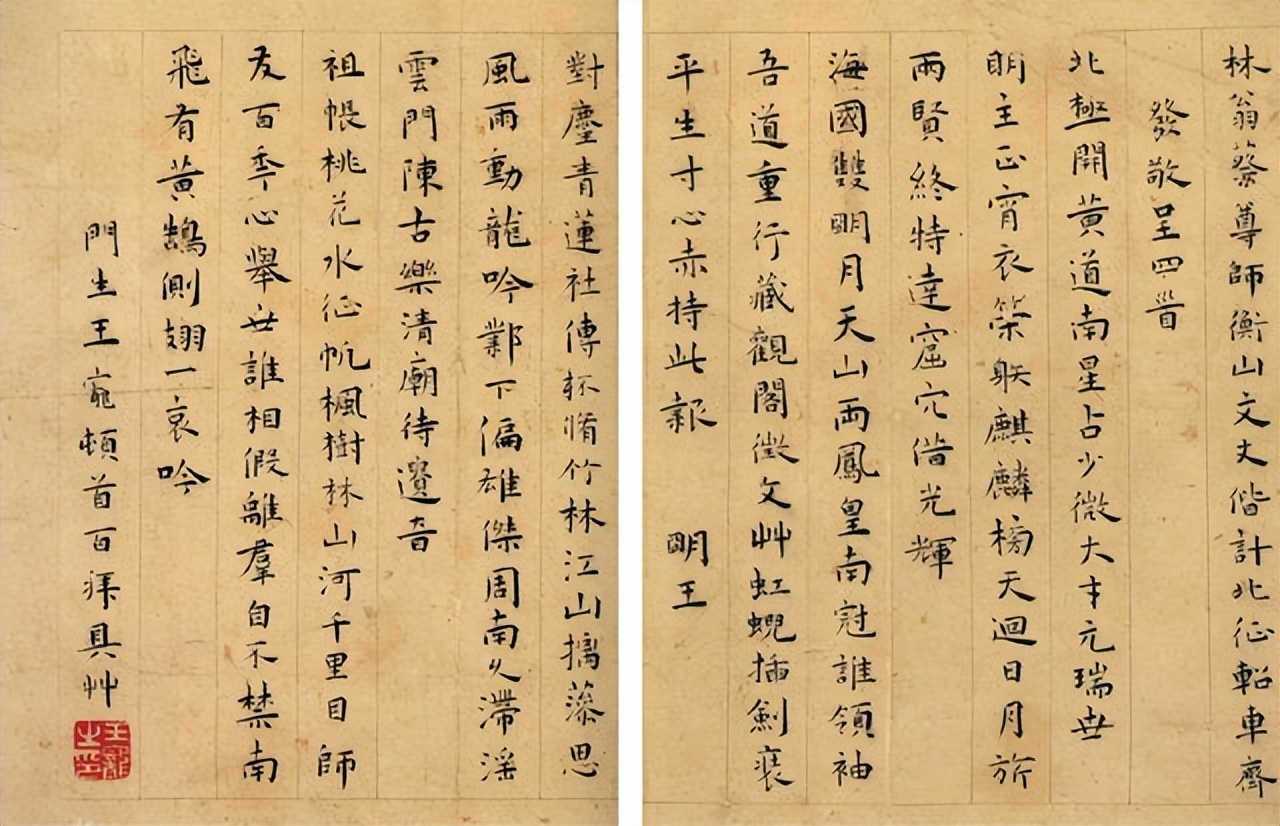 林翁蔡尊師衡山文丈偕計北征軺車齊
發敬呈四首
北極開黃道南星占少微大才元瑞世
明主正宵衣策映麒麟榜天迴日月旂
兩賢終特達窟穴偕光輝
海國雙明月天山兩鳳皇南冠誰領袖
吾道重行藏觀閣徵文艸虹蜺插劍裝
平生寸心赤持此報 明王
對塵青蓮社傳杯脩竹林江山摛藻思
風雨動龍吟鄴下偏雄傑周南久滯淫
雲門陳古樂清廟待遺音
祖帳桃花水征帆楓樹林山河千里目師
友百季心舉世誰相假離羣自不禁南
飛有黃鵠側翅一哀吟
門生王寵頓首百拜具艸
王寵之印